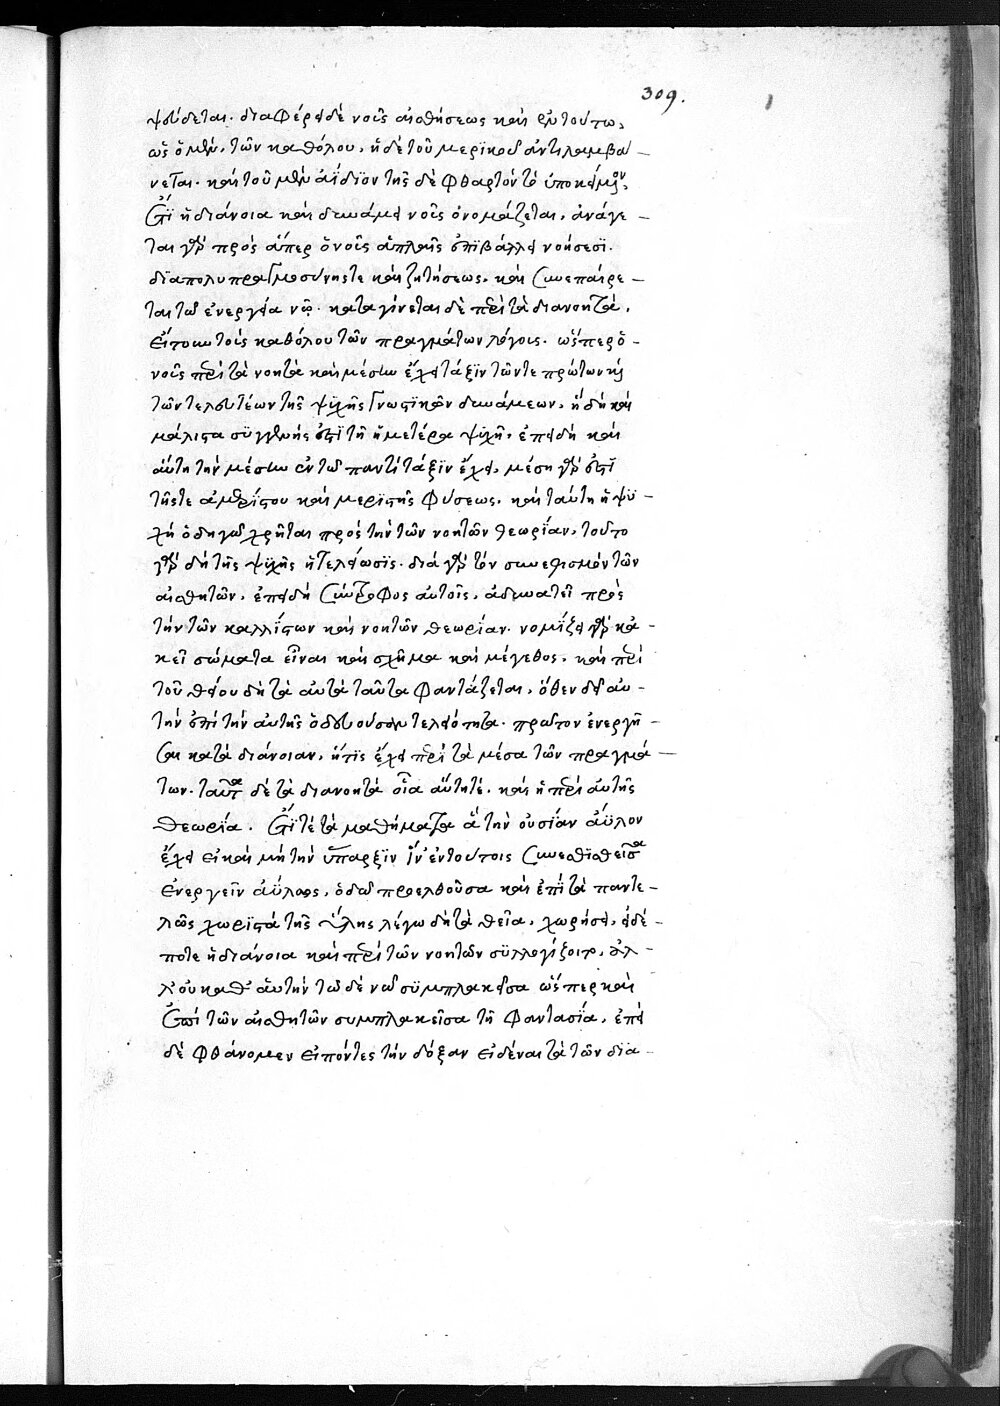 309.
ψεύδεται. διαφέρει δὲ νοῦς αἰσθήσεως καὶ ἐν τούτω,
ὡς ὁ μὲν, τῶν καθόλου, ἡ δὲ τοῦ μερικοῦ ἀντιλαμβά
νεται. καὶ τοῦ μὲν ἀΐδιον τῆς δὲ φθαρτὸν τὸ ὑποκείμενον.
ἔτι ἡ διάνοια καὶ δυνάμει νοῦς ὀνομάζεται, ἀνάγε
ται γὰρ πρὸς ἅπερ ὁ νοῦς ἁπλαῖς ἐπιβάλλει νοήσεσι.
διαπολυπραγμοσύνης τε καὶ ζητήσεως. καὶ συνεπαίρε
ται τῶ ἐνεργεία νῶ. καταγίνεται δὲ περὶ τὰ διανοητὰ,
εἴτουν τοῖς καθόλου τῶν πραγμάτων λόγοις. ὥσπερ ὁ
νοῦς περὶ τὰ νοητὰ καὶ μέσην ἔχει τάξιν τῶν τε πρώτων καὶ
τῶν τελευταίων τῆς ψυχῆς γνωστικῶν δυνάμεων, ἤδη καὶ
μάλιστα συγγενής ἐστι τῆ ἡμετέρα ψυχῆ, ἐπειδὴ καὶ
αὕτη τὴν μέσην ἐν τῶ παντὶ τάξιν ἔχει, μέση γάρ ἐστι
τῆς τε ἀμερίστου καὶ μεριστῆς φύσεως. καὶ ταύτη ἡ ψυ
χὴ ὁδηγῶ χρῆται πρὸς τὴν τῶν νοητῶν θεωρίαν, τοῦτο
γὰρ δὴ τῆς ψυχῆς ἡ τελείωσις. διὰ γὰρ τὸν συνεθισμὸν τῶν
αἰσθητῶν, ἐπειδὴ σύντροφος αὐτοῖς, ἀδυνατεῖ πρὸς
τὴν τῶν καλλίστων καὶ νοητῶν θεωρίαν. νομίζει γὰρ κἀ
κεῖ σώματα εἶναι καὶ σχῆμα καὶ μέγεθος. καὶ περὶ
τοῦ θείου δὴ τὰ αὐτὰ ταῦτα φαντάζεται, ὅθεν δεῖ αὐ
τὴν ἐπὶ τὴν αὐτῆς ὁδεύουσαν τελειότητα. πρῶτον ἐνεργῆ
σαι κατὰ διάνοιαν, ἥτις ἔχει περὶ τὰ μέσα τῶν πραγμά
των. ταῦτα δὲ τὰ διανοητὰ οἷα αὕτη τέ. καὶ ἡ περὶ αὐτῆς
θεωρία. ἔτι τε τὰ μαθήματα ἃ τὴν οὐσίαν ἄϋλον
ἔχει εἰ καὶ μὴ τὴν ὕπαρξιν ἵν' ἐν τούτοις συνεθισθεῖσα
ἐνεργεῖν ἀΰλως, ὁδῶ προελθοῦσα καὶ ἐπὶ τὰ παντε
λῶς χωριστὰ τῆς ὕλης λέγω δὴ τὰ θεῖα, χωρήσει, εἰ δέ
ποτε ἡ διάνοια καὶ περὶ τῶν νοητῶν συλλογίζοιτο, ἀλ
λ' οὐ καθ' αὑτὴν τῶ δὲ νῶ συμπλακεῖσα ὥσπερ καὶ
ἐπὶ τῶν αἰσθητῶν συμπλακεῖσα τῆ φαντασία, ἐπεὶ
δὲ φθάνομεν εἰπόντες τὴν δόξαν εἰδέναι τὰ τῶν δια